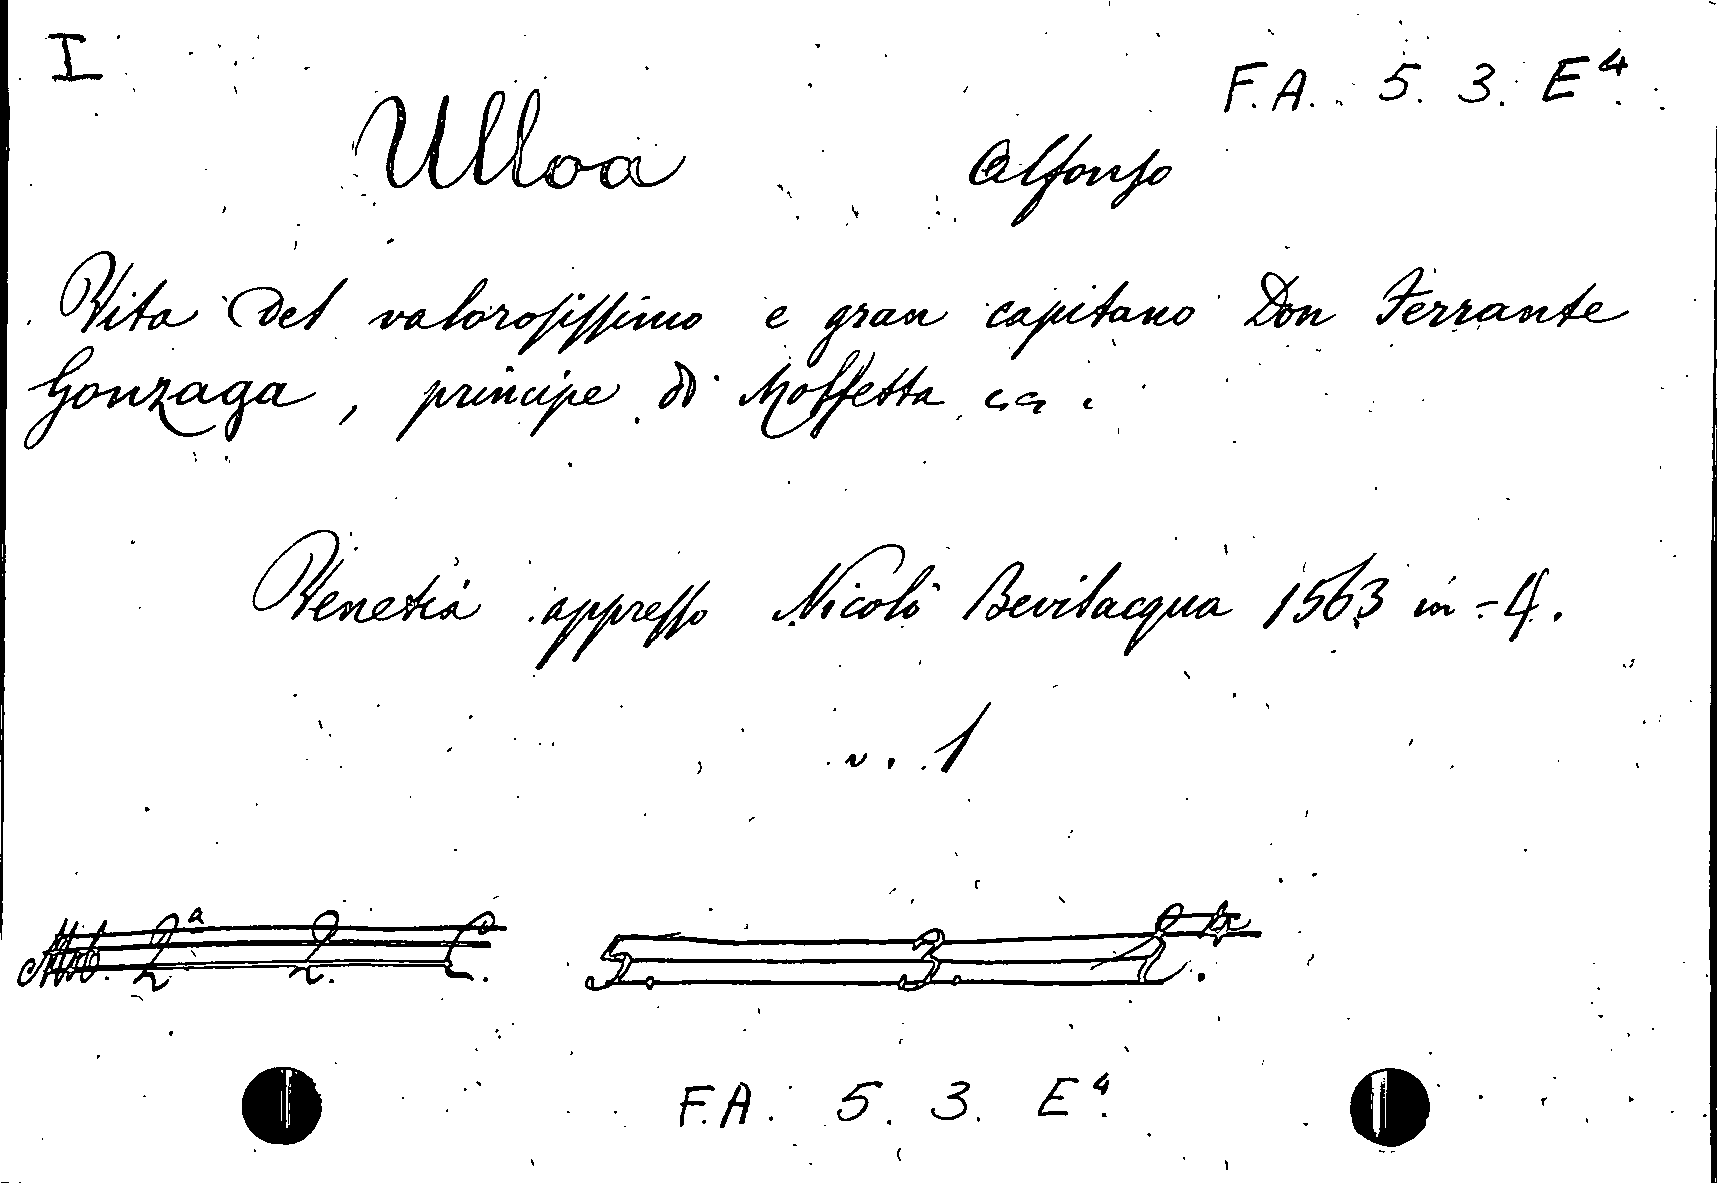 I
F.A. 5. 3. E⁴.
Ulloa Alfonso
Vita del valorosissimo e gran capitano Don Ferrante
Gonzaga, principe di Molfetta ecc.
Venetia appresso Nicolò Bevilacqua 1563 in-4.
v. 1
2ª 2. C. 5. 3.
F.A. 5. 3. E⁴.